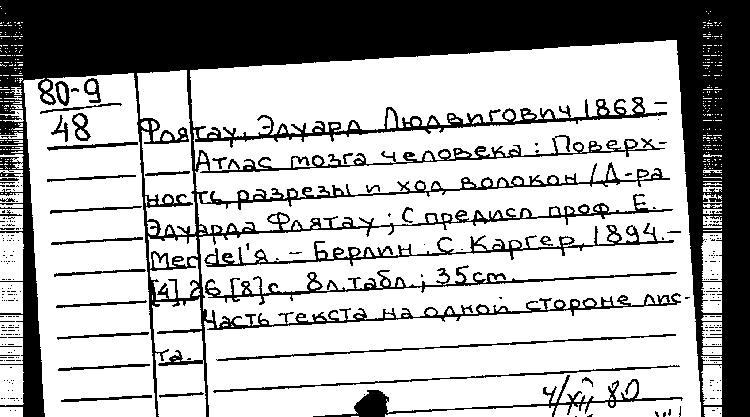 80-9
48
Флятау, Эдуард Людвигович, 1868-
Атлас мозга человека: Поверх-
ность, разрезы и ход волокон / Д-ра
Эдуарда Флятау; С предисл проф. Е.
Mendel'я. - Берлин. С. Каргер, 1894.-
[4], 26, [8] с, 8 л. табл.; 35 cm.
Часть текста на одной стороне лис-
та.
4/XII 80